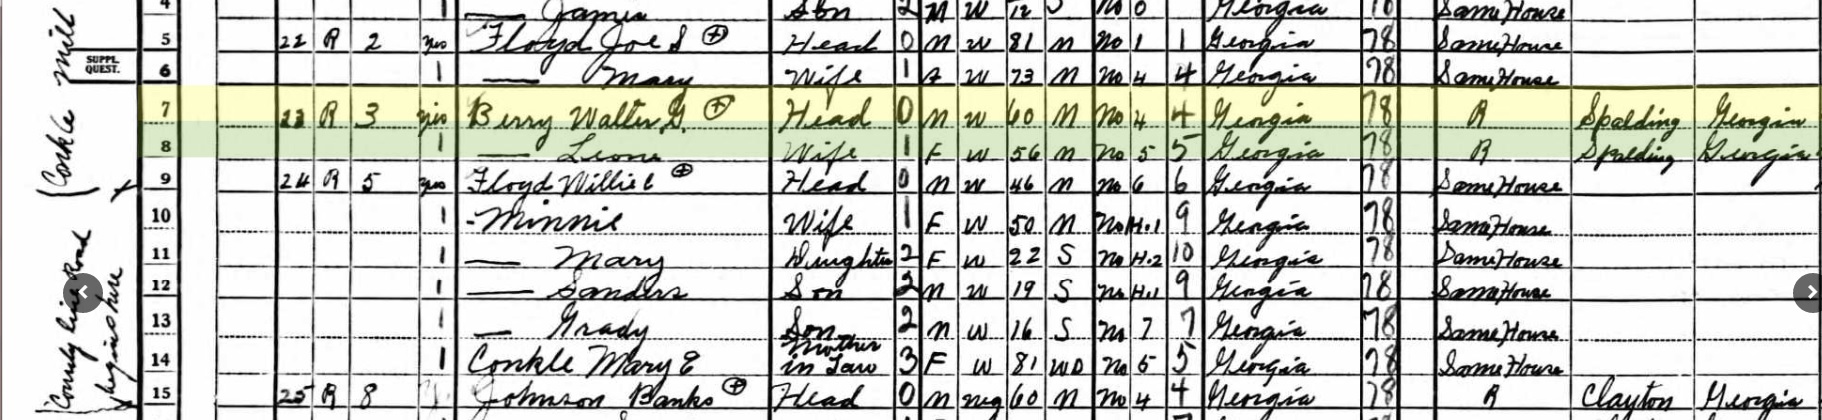 4 — James Son 2 M W 12 S No 0 Georgia 78 Same House
5 22 R 2 yes Floyd Joe S ⊕ Head 0 M W 81 M No 1 1 Georgia 78 Same House
SUPPL. QUEST.
6 1 — Mary Wife 1 F W 73 M No 4 4 Georgia 78 Same House
7 23 R 3 yes Berry Walter G. ⊕ Head 0 M W 60 M No 4 4 Georgia 78 R Spalding Georgia
8 1 — Leone Wife 1 F W 56 M No 5 5 Georgia 78 R Spalding Georgia
9 24 R 5 yes Floyd Willie C ⊕ Head 0 M W 46 M No 6 6 Georgia 78 Same House
10 1 - Minnie Wife 1 F W 50 M No H.1 9 Georgia 78 Same House
11 1 — Mary Daughter 2 F W 22 S No H.2 10 Georgia 78 Same House
12 1 — Sanders Son 2 M W 19 S No H.1 9 Georgia 78 Same House
13 1 — Grady Son 2 M W 16 S No 7 7 Georgia 78 Same House
14 1 Conkle Mary E Mother in Law 3 F W 81 WD No 5 5 Georgia 78 Same House
15 25 R 8 Johnson Banks ⊕ Head 0 M neg 60 M No 4 4 Georgia 78 R Clayton Georgia
(Conkle Mill
Road
begins here